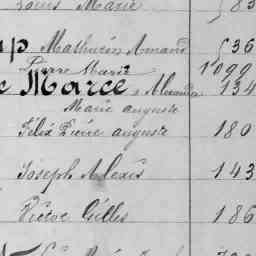 Louis Marie 583
Mathurin Armand 536
Pierre Marie 1099
Marce, Alexandre 134
Marie auguste
Félix Pierre auguste 180
Joseph Alexis 143
Victor Gilles 186